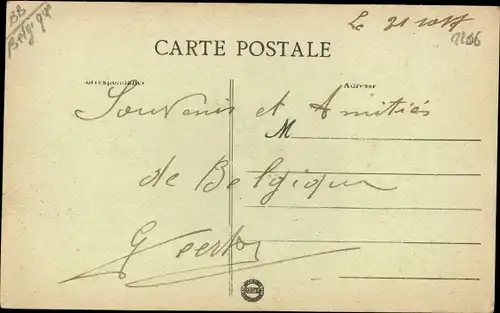 BB
Belgique
Le 21
2206
CARTE POSTALE
Correspondance
Adresse
Souvenirs et Amitiés
M
de Belgique